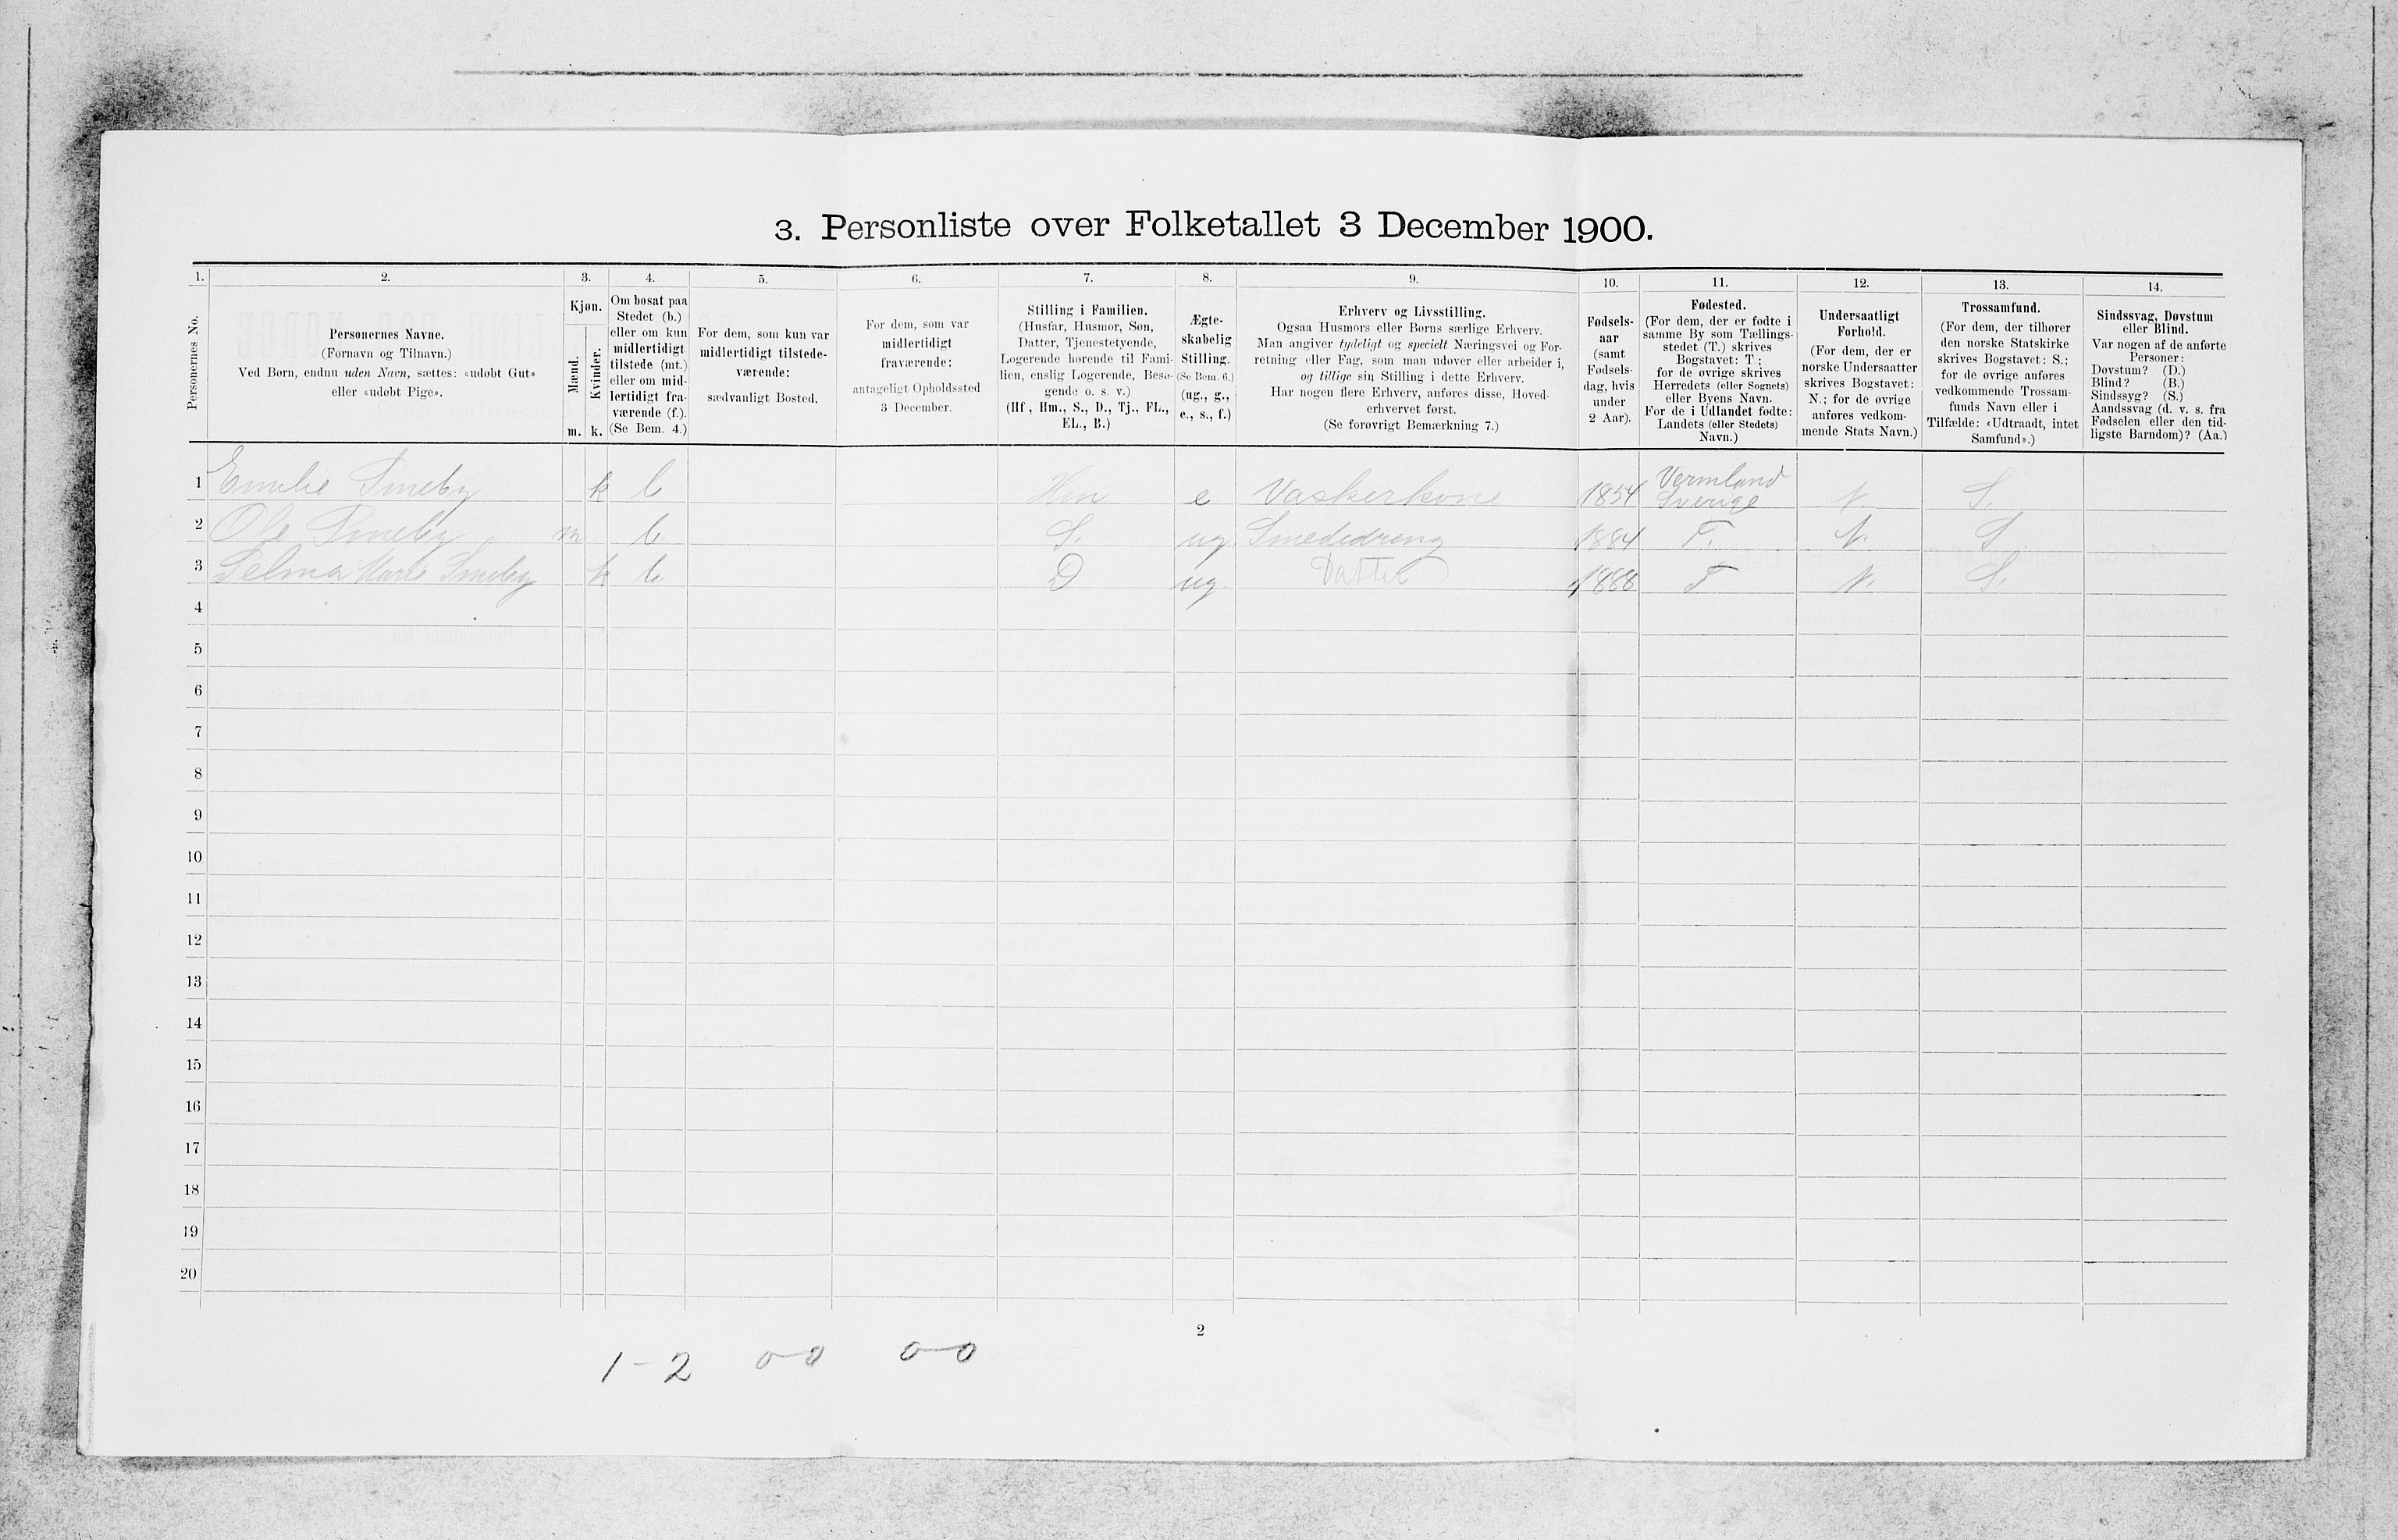 3. Personliste over Folketallet 3 December 1900.
1. 2. 3. 4. 5. 6. 7. 8. 9. 10. 11. 12. 13. 14.
Personernes No.
Personernes Navne.
(Fornavn og Tilnavn.)
Ved Børn, endnu uden Navn, sættes: «udøbt Gut»
eller «udøbt Pige».
Kjøn.
Mænd.
Kvinder.
m. k.
Om bosat paa
Stedet (b.)
eller om kun
midlertidigt
tilstede (mt.)
eller om mid-
lertidigt fra-
værende (f.).
(Se Bem. 4.)
For dem, som kun var
midlertidigt tilstede-
værende:
sædvanligt Bosted.
For dem, som var
midlertidigt
fraværende:
antageligt Opholdssted
3 December.
Stilling i Familien.
(Husfar, Husmor, Søn,
Datter, Tjenestetyende,
Logerende hørende til Fami-
lien, enslig Logerende, Besø-
gende o. s. v.)
(Hf., Hm., S., D., Tj., FL.,
EL., B.)
Ægte-
skabelig
Stilling.
(Se Bem. 6.)
(ug., g.,
e., s., f.)
Erhverv og Livsstilling.
Ogsaa Husmors eller Børns særlige Erhverv.
Man angiver tydeligt og specielt Næringsvei og For-
retning eller Fag, som man udøver eller arbeider i,
og tillige sin Stilling i dette Erhverv.
Har nogen flere Erhverv, anføres disse, Hoved-
erhvervet først.
(Se forøvrigt Bemærkning 7.)
Fødsels-
aar
(samt
Fødsels-
dag, hvis
under
2 Aar).
Fødested.
(For dem, der er fødte i
samme By som Tællings-
stedet (T.) skrives
Bogstavet: T;
for de øvrige skrives
Herredets (eller Sognets)
eller Byens Navn.
For de i Udlandet fødte:
Landets (eller Stedets)
Navn.)
Undersaatligt
Forhold.
(For dem, der er
norske Undersaatter
skrives Bogstavet:
N.; for de øvrige
anføres vedkom-
mende Stats Navn.)
Trossamfund.
(For dem, der tilhører
den norske Statskirke
skrives Bogstavet: S.;
for de øvrige anføres
vedkommende Trossam-
funds Navn eller i
Tilfælde: «Udtraadt, intet
Samfund».)
Sindssvag, Døvstum
eller Blind.
Var nogen af de anførte
Personer:
Døvstum? (D.)
Blind? (B.)
Sindssyg? (S.)
Aandssvag (d. v. s. fra
Fødselen eller den tid-
ligste Barndom)? (Aa.)
1 Emilie Smeby k b Hm e Vaskerkone 1854 Vermland Sverige N. S.
2 Ole Smeby m b. S. ug. Smededreng 1884 T. N. S
3 Selma Marie Smeby k b. D ug. Datter 1888 T N. S.
4
5
6
7
8
9
10
11
12
13
14
15
16
17
18
19
20
2
1-2 0-0 0-0